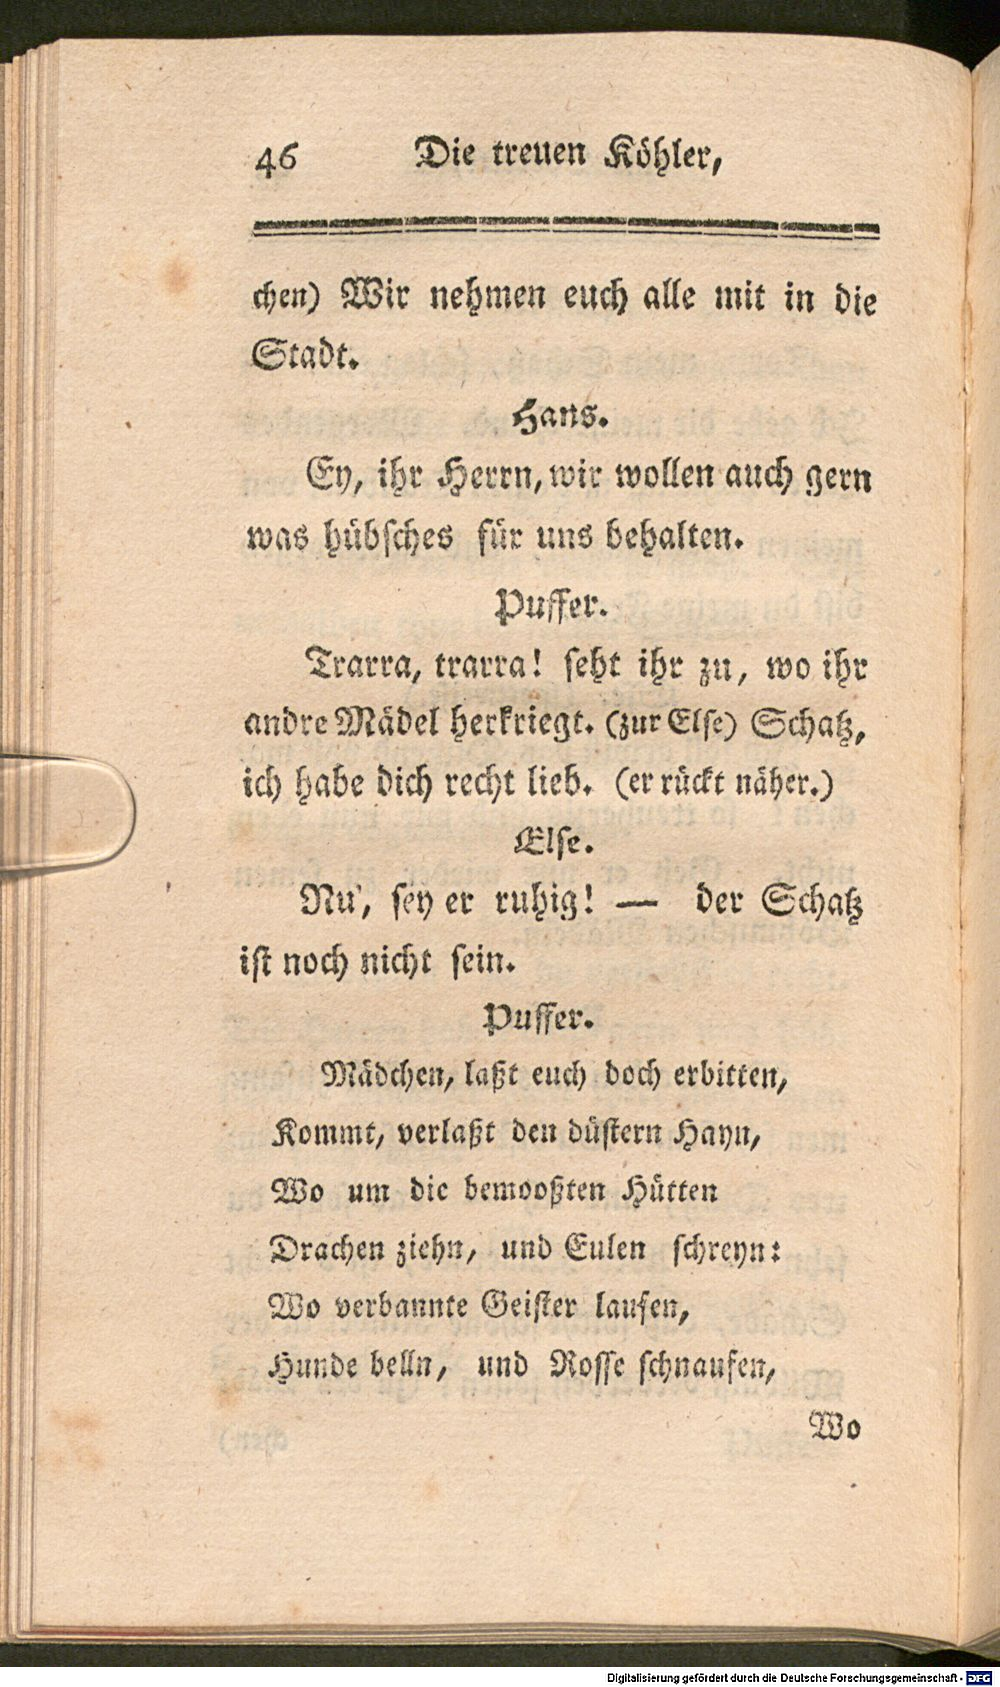 46 Die treuen Köhler,
chen) Wir nehmen euch alle mit in die
Stadt.
Hans.
Ey, ihr Herrn, wir wollen auch gern
was hübſches für uns behalten.
Puffer.
Trarra, trarra! ſeht ihr zu, wo ihr
andre Mädel herkriegt. (zur Elſe) Schatz,
ich habe dich recht lieb. (er rückt näher.)
Elſe.
Nu', ſey er ruhig! — der Schatz
iſt noch nicht ſein.
Puffer.
Mädchen, laßt euch doch erbitten,
Kommt, verlaßt den düſtern Hayn,
Wo um die bemooßten Hütten
Drachen ziehn, und Eulen ſchreyn:
Wo verbannte Geiſter laufen,
Hunde belln, und Roſſe ſchnaufen,
Wo
Digitalisierung gefördert durch die Deutsche Forschungsgemeinschaft - DFG